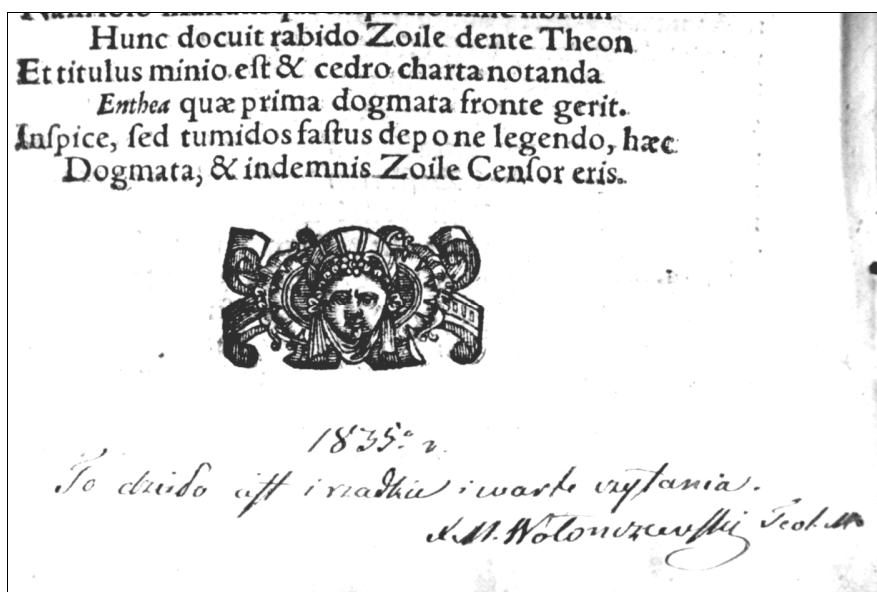 Hunc docuit rabido Zoile dente Theon
Et titulus minio est & cedro charta notanda
Enthea quæ prima dogmata fronte gerit.
Inſpice, ſed tumidos faſtus depone legendo, hæc
Dogmata, & indemnis Zoile Cenſor eris.
1835º r.
To dzieło iſt i rzadkie i warte czytania.
X. M. Wołonczewſki Teol. M